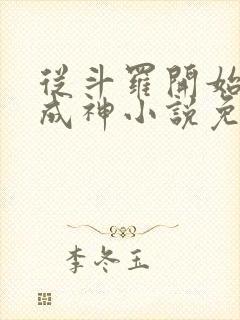 從斗羅開始
成神小說免
李冬玉